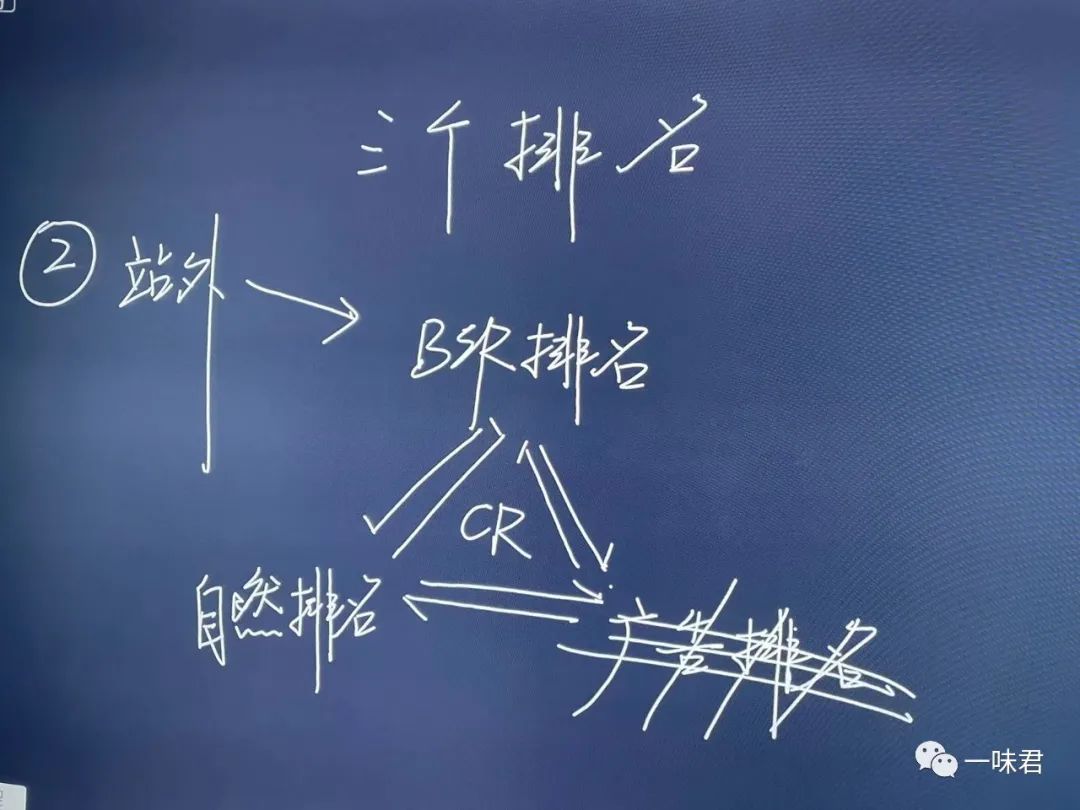 三个排名
② 站外
BSR排名
CR
自然排名
广告排名
一味君